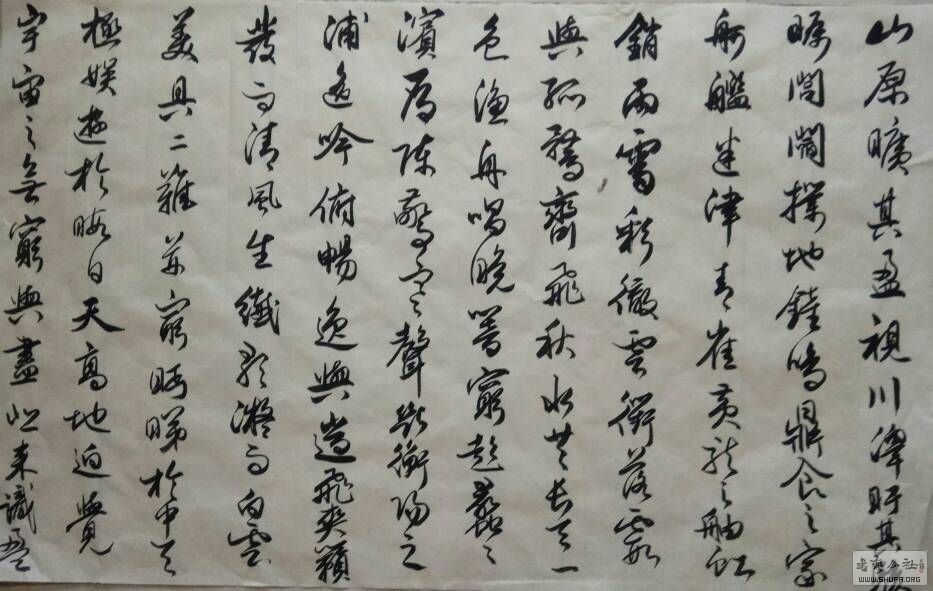 山原曠其盈視川澤盱其駭
矚閭閻撲地鐘鳴鼎食之家
舸艦迷津青雀黃龍之舳虹
銷雨霽彩徹雲衢落霞
與孤鶩齊飛秋水共長天一
色漁舟唱晚響窮彭蠡之
濱雁陣驚寒聲斷衡陽之
浦遙吟俯暢逸興遄飛爽籟
發而清風生纖歌凝而白雲
美具二難并窮眄睇於中天
極娛遊於暇日天高地迥覺
宇宙之無窮興盡悲來識盈
書藝公社
WWW.SHUFA.ORG